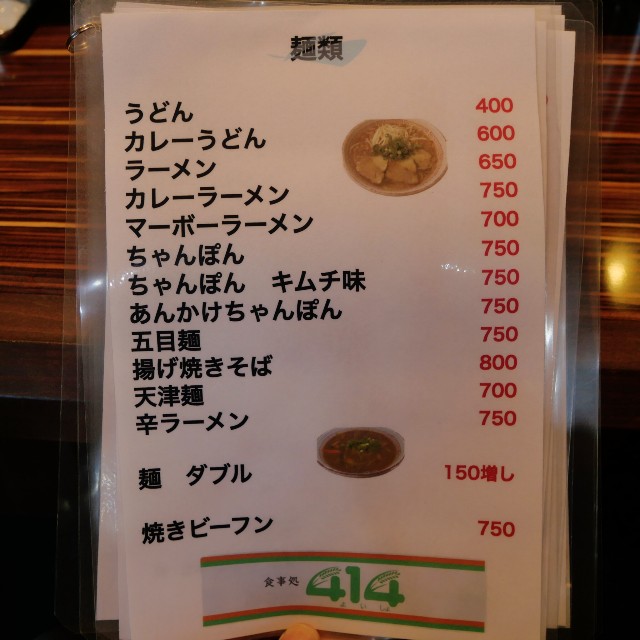 麺類
うどん 400
カレーうどん 600
ラーメン 650
カレーラーメン 750
マーボーラーメン 700
ちゃんぽん 750
ちゃんぽん　キムチ味 750
あんかけちゃんぽん 750
五目麺 750
揚げ焼きそば 800
天津麺 700
辛ラーメン 750
麺　ダブル 150増し
焼きビーフン 750
食事処 414
よいよ